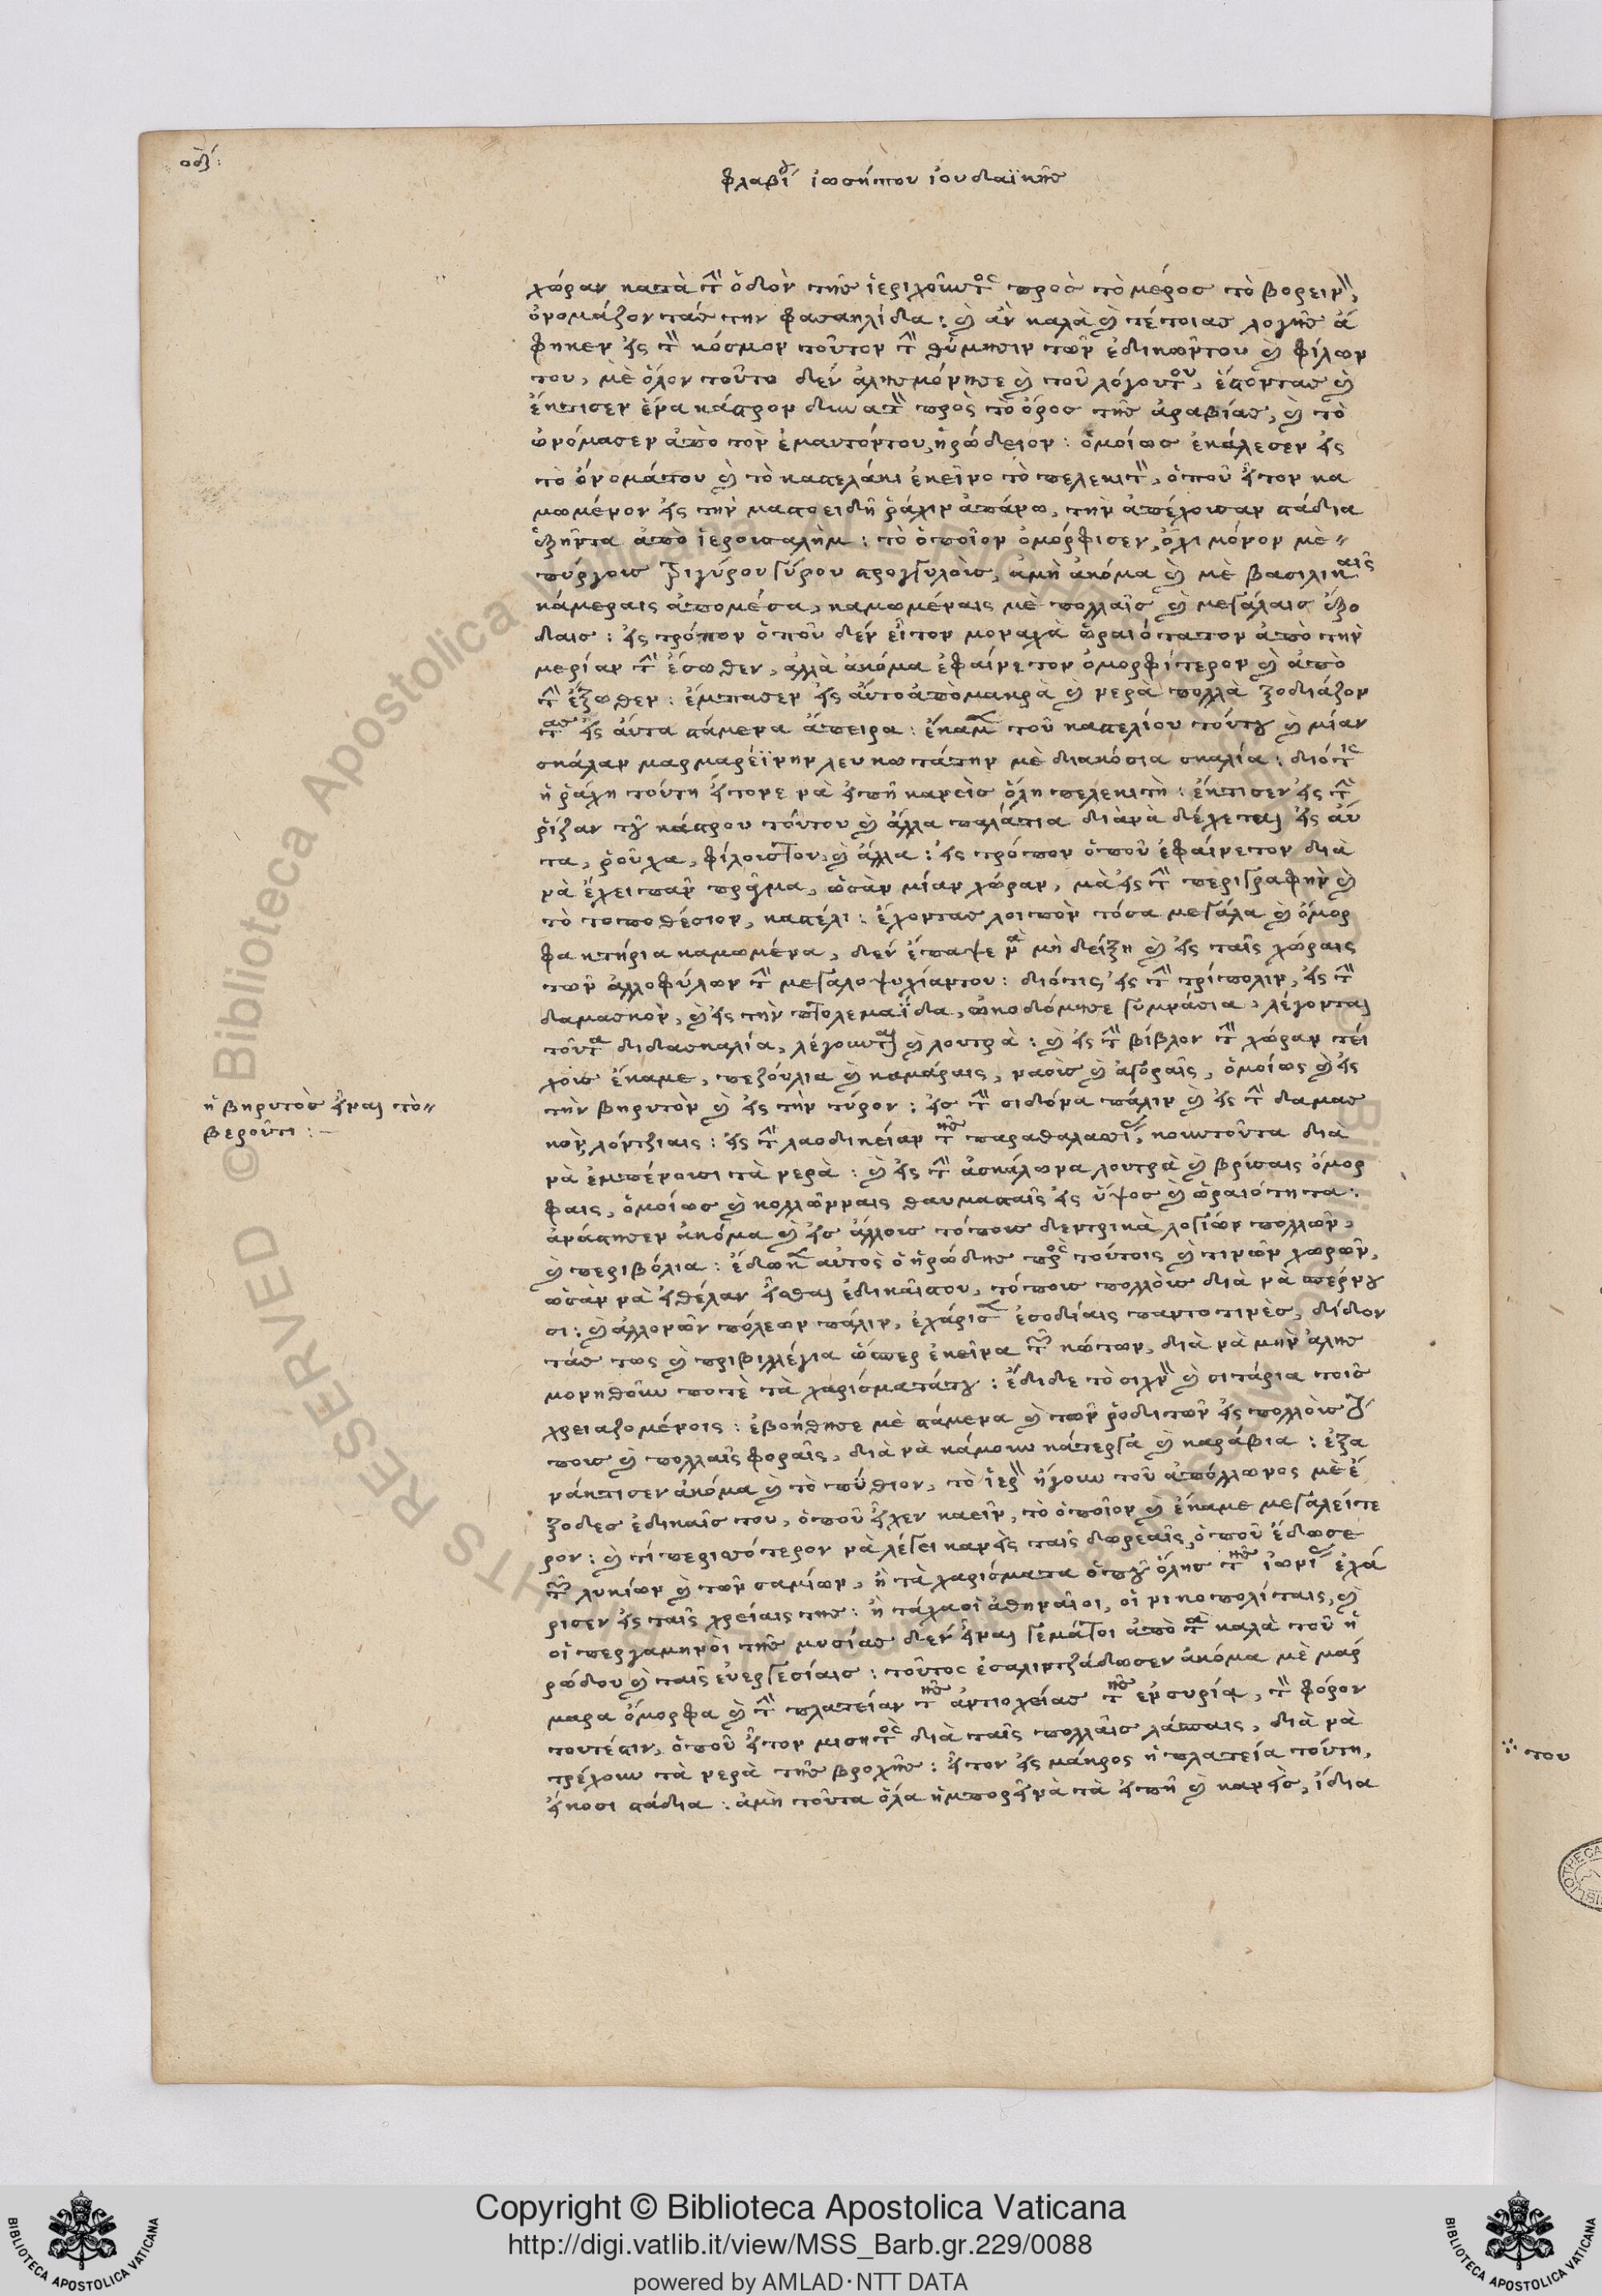 φλαβίου ἰωσήπου ἰουδαϊκῆς
χώραν κατὰ τὴν ὁδὸν τῆς ἱεριχοῦντος πρὸς τὸ μέρος τὸ βορεινὸν,
ὀνομάζοντάς την φασαηλίδα: καὶ ἂν καλὰ καὶ τέτοιας λογῆς ἄ
φηκεν εἰς τὸν κόσμον τοῦτον τὴν θύμησιν τῶν ἐδικῶντου καὶ φίλων
του, μὲ ὅλον τοῦτο δὲν ἀλησμόνησε καὶ τοῦ λόγουτου, ἔστοντας καὶ
ἔκτισεν ἕνα κάστρον δυνατὸν πρὸς τὸ ὄρος τῆς ἀραβίας, καὶ τὸ
ὠνόμασεν ἀπὸ τὸν ἐμαυτόντου, ἡρώδειον: ὁμοίως ἐκάλεσεν εἰς
τὸ ὄνομάτου καὶ τὸ καστελάκι ἐκεῖνο τὸ πελεκιτὸν, ὁποῦ ἦτον κα
μωμένον εἰς τὴν μαστοειδῆ ῥάχιν ἀπάνω, τὴν ἀπέχουσαν στάδια
ἑξῆντα ἀπὸ ἱερουσαλὴμ: τὸ ὁποῖον ὀμόρφισεν, ὄχι μόνον μὲ
πύργους τριγύρου γύρου στρογγυλοὺς, ἀμὴ ἀκόμα καὶ μὲ βασιλικαῖς
κάμεραις ἀπομέσα, καμωμέναις μὲ πολλαῖς καὶ μεγάλαις ἐξο
δαις: εἰς τρόπον ὁποῦ δὲν εἶτον μοναχὰ ὡραιότατον ἀπὸ τὴν
μερίαν τὴν ἔσωθεν, ἀλλὰ ἀκόμα ἐφαίνετον ὀμορφίτερον καὶ ἀπὸ
τὴν ἔξωθεν: ἔμπασεν εἰς αὐτὸ ἀπὸμακρὰ καὶ νερὰ πολλὰ ξοδιάζον
τας εἰς αὐτα στάμενα ἄπειρα: ἔκαμεν τοῦ καστελίου τούτου καὶ μίαν
σκάλαν μαρμαρέϊνην λευκωτάτην μὲ διακόσια σκαλία: διότις
ἡ ῥάχη τούτη ἤτονε νὰ εἰπῆ κανεὶς ὅλη πελεκιτὴ: ἔκτισεν εἰς τὴν
ῥίζαν τοῦ κάστρου τούτου καὶ ἄλλα παλάτια διὰνὰ δέχεται εἰς αὐ
τα, ῥοῦχα, φίλουςτου, καὶ ἄλλα: εἰς τρόπον ὁποῦ ἐφαίνετον διὰ
νὰ ἔχει πᾶν πρᾶγμα, ὡσὰν μίαν χώραν, μὰ εἰς τὴν περιγραφὴν καὶ
τὸ τοποθέσιον, καστέλι: ἔχοντας λοιπὸν τόσα μεγάλα καὶ ὄμορ
φα κτήρια καμωμένα, δὲν ἔπαψε νὰ μὴ δείξη καὶ εἰς ταῖς χώραις
τῶν ἀλλοφύλων τὴν μεγαλοψυχίαντου: διότις εἰς τὴν τρίπολιν, εἰς τὴν
δαμασκὸν, καὶ εἰς τὴν πτολεμαΐδα, ὠκοδόμησε γυμνάσια, λέγονται
τοῦτα διδασκαλία, λέγουνται καὶ λουτρὰ: καὶ εἰς τὴν βίβλον τὴν χώραν τεί
χους ἔκαμε, πεζούλια καὶ καμάραις, ναοὺς καὶ ἀγοραῖς, ὁμοίως καὶ εἰς
ἡ βηρυτὸς εἶναι τὸ
βεροῦτι:
τὴν βηρυτὸν καὶ εἰς τὴν τύρον: εἰς τὴν σιδόνα πάλιν καὶ εἰς τὴν δαμασ
κὸν, λόντζιαις: εἰς τὴν λαοδικείαν τῆς παραθαλασσίας, κουντοῦτα διὰ
νὰ ἐμπένουσι τὰ νερὰ: καὶ εἰς τὴν ἀσκάλωνα λουτρὰ καὶ βρίσαις ὄμορ
φαις, ὁμοίως καὶ κολλῶνναις θαυμασταῖς εἰς ὕψος καὶ ὡραιότητα:
ἀνάστησεν ἀκόμα καὶ εἰς ἄλλους τόπους δεντρικὰ λογίων πολλῶν,
καὶ περιβόλια: ἔδωκεν αὐτὸς ὁ ἡρώδης πρὸς τούτοις καὶ τινῶν χωρῶν,
ὡσὰν νὰ εἴθελαν εἶσθαι ἐδικαῖςτου, τόπους πολλοὺς διὰ νὰ σπέρνου
σι: καὶ ἀλλονῶν πόλεων πάλιν, ἐχάρισεν ἐσοδίαις παντοτινὲς, δίδον
τάς τως καὶ πριβιλλέγια ὥσπερ ἐκεῖνα τῶν κώτων, διὰ νὰ μὴν ἀλησ
μονηθοῦν ποτὲ τὰ χαρίσματάτου: ἔδιδε τὸ συχνὸν καὶ σιτάρια τοῖς
χρειαζομένοις: ἐβοήθησε μὲ στάμενα καὶ τῶν ῥοδιτῶν εἰς πολλοὺς τρό
πους καὶ πολλαῖς φοραῖς, διὰ νὰ κάμουν κάτεργα καὶ καράβια: ἐξα
νάκτισεν ἀκόμα καὶ τὸ πύθιον, τὸ ἱερὸν ἤγουν τοῦ ἀπόλλωνος μὲ ἔ
ξοδες ἐδικαῖς του, ὁποῦ εἶχεν καεῖν, τὸ ὁποῖον καὶ ἔκαμε μεγαλείτε
ρον: καὶ τί περισσότερον νὰ λέγει κανεὶς ταῖς δωρεαῖς, ὁποῦ ἔδωσε
τῶν λυκίων καὶ τῶν σαμίων, ἢ τὰ χαρίσματα ὁποῦ ὅλης τῆς ἰωνίας ἐχά
ρισεν εἰς ταῖς χρείαις της: ἢ τάχα οἱ ἀθηναῖοι, οἱ νικοπολίταις, καὶ
οἱ περγαμηνοὶ τῆς μυσίας δὲν εἶναι γεμάτοι ἀπὸ τὰ καλὰ τοῦ ἡ
ρώδου καὶ ταῖς εὐεργεσίαις: τοῦτος ἐσαλιντζάδωσεν ἀκόμα μὲ μάρ
μαρα ὄμορφα καὶ τὴν πλατείαν τῆς ἀντιοχείας τῆς ἐν συρία, τὸν φόρον
τουτέστιν, ὁποῦ ἦτον μισητὸς διὰ ταῖς πολλαῖς λάσπαις, διὰ νὰ
τρέχουν τὰ νερὰ τῆς βροχῆς: ἦτον εἰς μάκρος ἡ πλατεία τούτη,
εἴκοσι στάδια: ἀμὴ τοῦτα ὅλα ἠμπορεῖ νὰ τὰ εἰπῆ καὶ κανεὶς, ἴδια
του
Copyright © Biblioteca Apostolica Vaticana
http://digi.vatlib.it/view/MSS_Barb.gr.229/0088
powered by AMLAD·NTT DATA